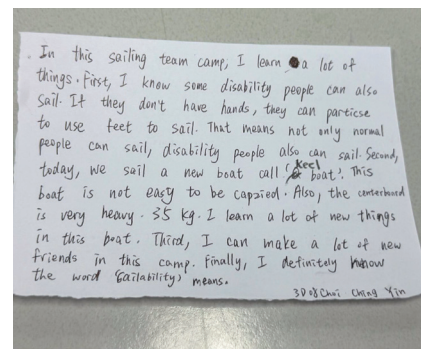 In this sailing team camp, I learn a lot of
things. First, I know some disability people can also
sail. If they don't have hands, they can particse
to use feet to sail. That means not only normal
people can sail, disability people also can sail. Second,
today, we sail a new boat call 'keel boat'. This
boat is not easy to be capzied. Also, the centerboard
is very heavy. 35 kg. I learn a lot of new things
in this boat. Third, I can make a lot of new
friends in this camp. Finally, I definitely know
the word 'Sailability' means.
3D 08 Choi Ching Yin